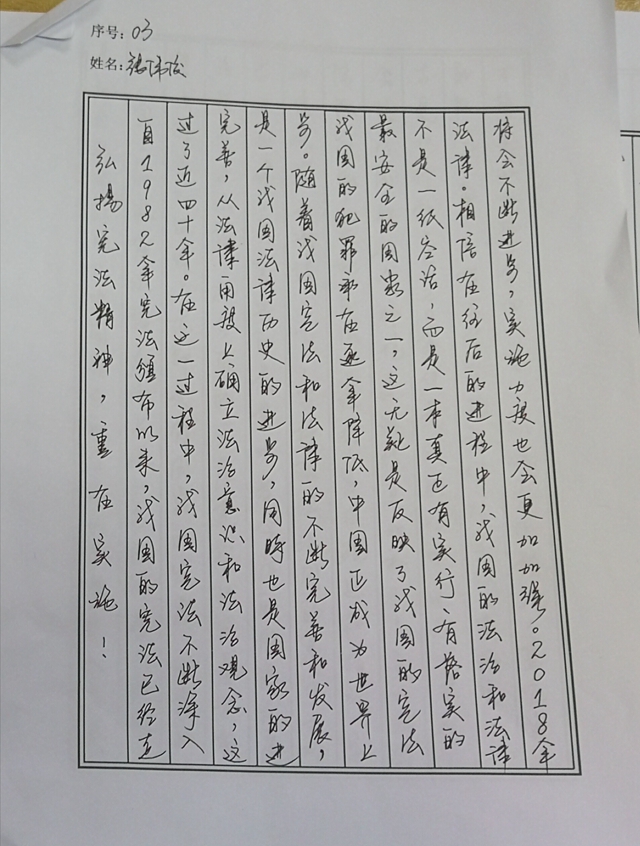 序号：03
姓名：
弘揚宪法精神，重在实施！
自1982年宪法颁布以来，我国的宪法已经走
过了近四十年。在这一过程中，我国宪法不断深入
完善，从法律角度上确立法治意识和法治观念，这
是一个我国法律历史的进步，同時也是国家的进
步。随着我国宪法和法律的不断完善和发展，
我国的犯罪率在逐年降低，中国正成为世界上
最安全的国家之一，这无疑是反映了我国的宪法
不是一纸空话，而是一本真正有实行、有落实的
法律。相信在往后的进程中，我国的法治和法律
将会不断进步，实施力度也会更加加强。2018年